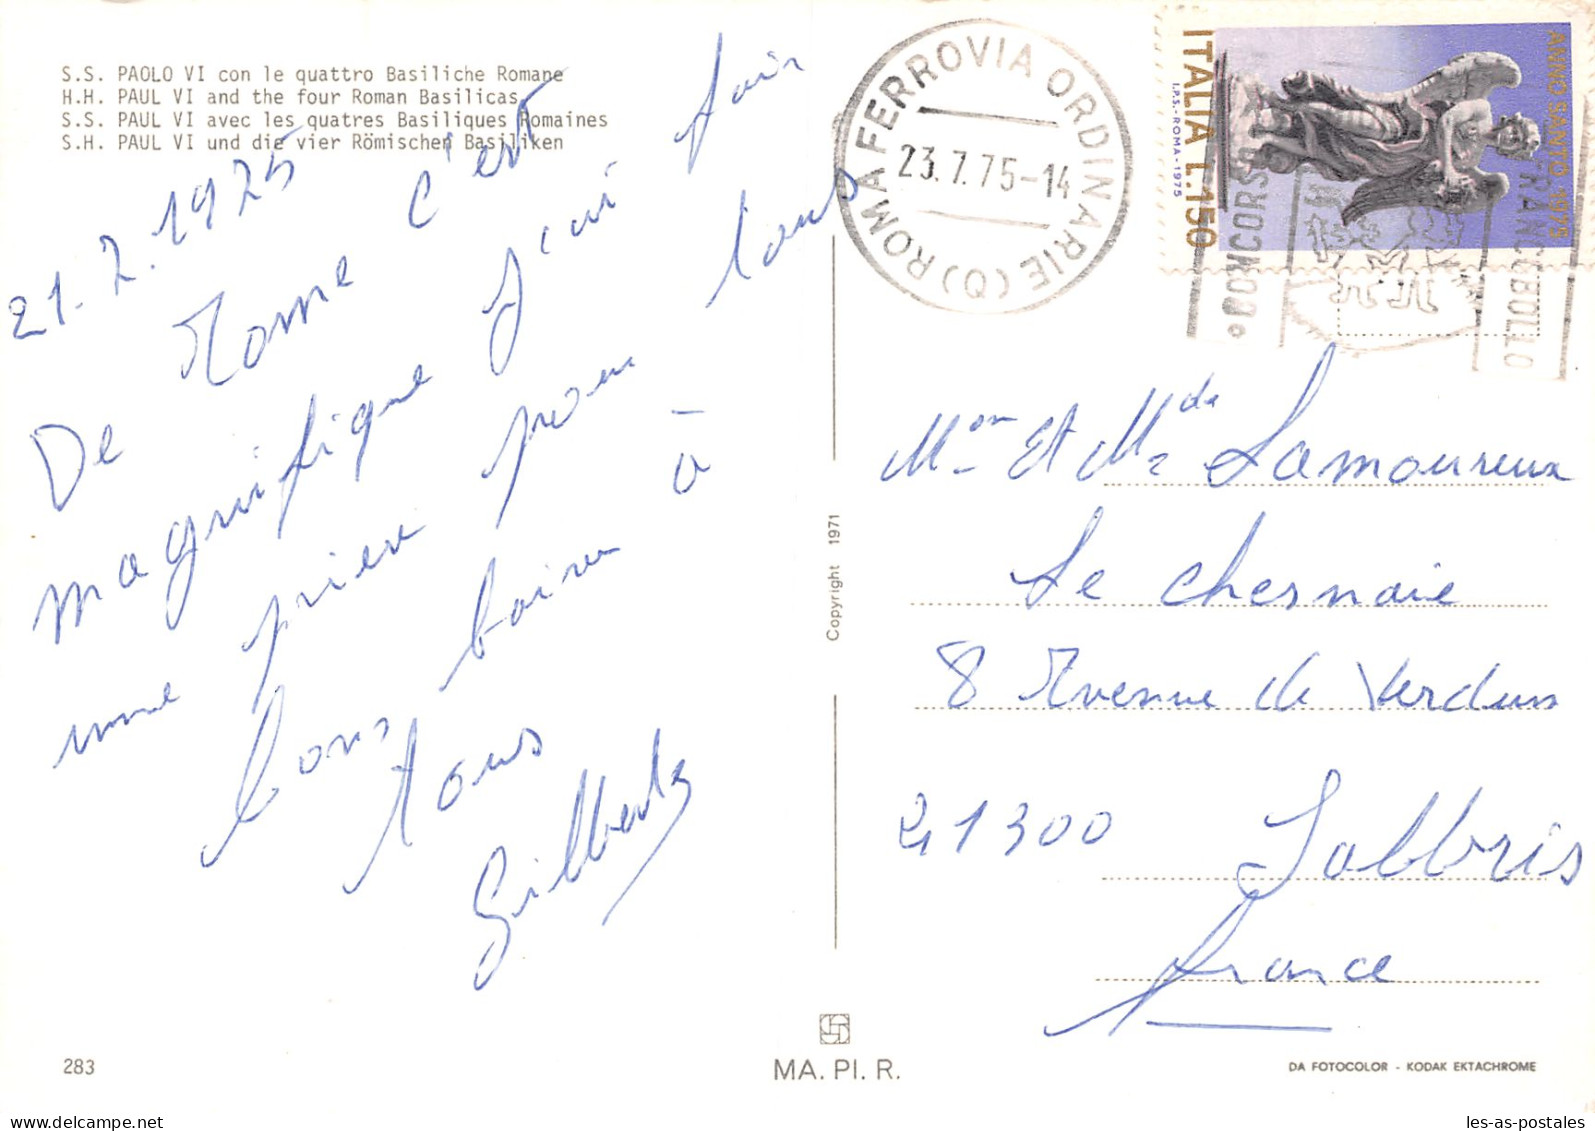 S.S. PAOLO VI con le quattro Basiliche Romane
H.H. PAUL VI and the four Roman Basilicas
S.S. PAUL VI avec les quatres Basiliques Romaines
S.H. PAUL VI und die vier Römischen Basiliken
21.7.1975
De Rome c'est
magnifique J'ai fair
une prier pour tous
bons boire à
tous
Gilberte
283
Copyright 1971
MA. PI. R.
ROMA FERROVIA ORDINARIE (O)
23.7.75-14
ITALIA L.150
I.P.S.-ROMA-1975
ANNO SANTO 1975
CONCORSO
FRANCOBOLLO
Mon Et Mda Lamoureux
Le Chesnaie
8 Avenue de Verdun
41300 Salbris
France
DA FOTOCOLOR - KODAK EKTACHROME
les-as-postales.com